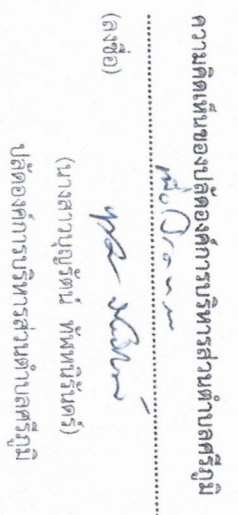 ความคิดเห็นของปลัดองค์การบริหารส่วนตำบลศรีภูมิ
เพื่อโปรด
(ลงชื่อ)
(นางสาวบุญรัตน์ ทัพหนิรันดร์)
ปลัดองค์การบริหารส่วนตำบลศรีภูมิ